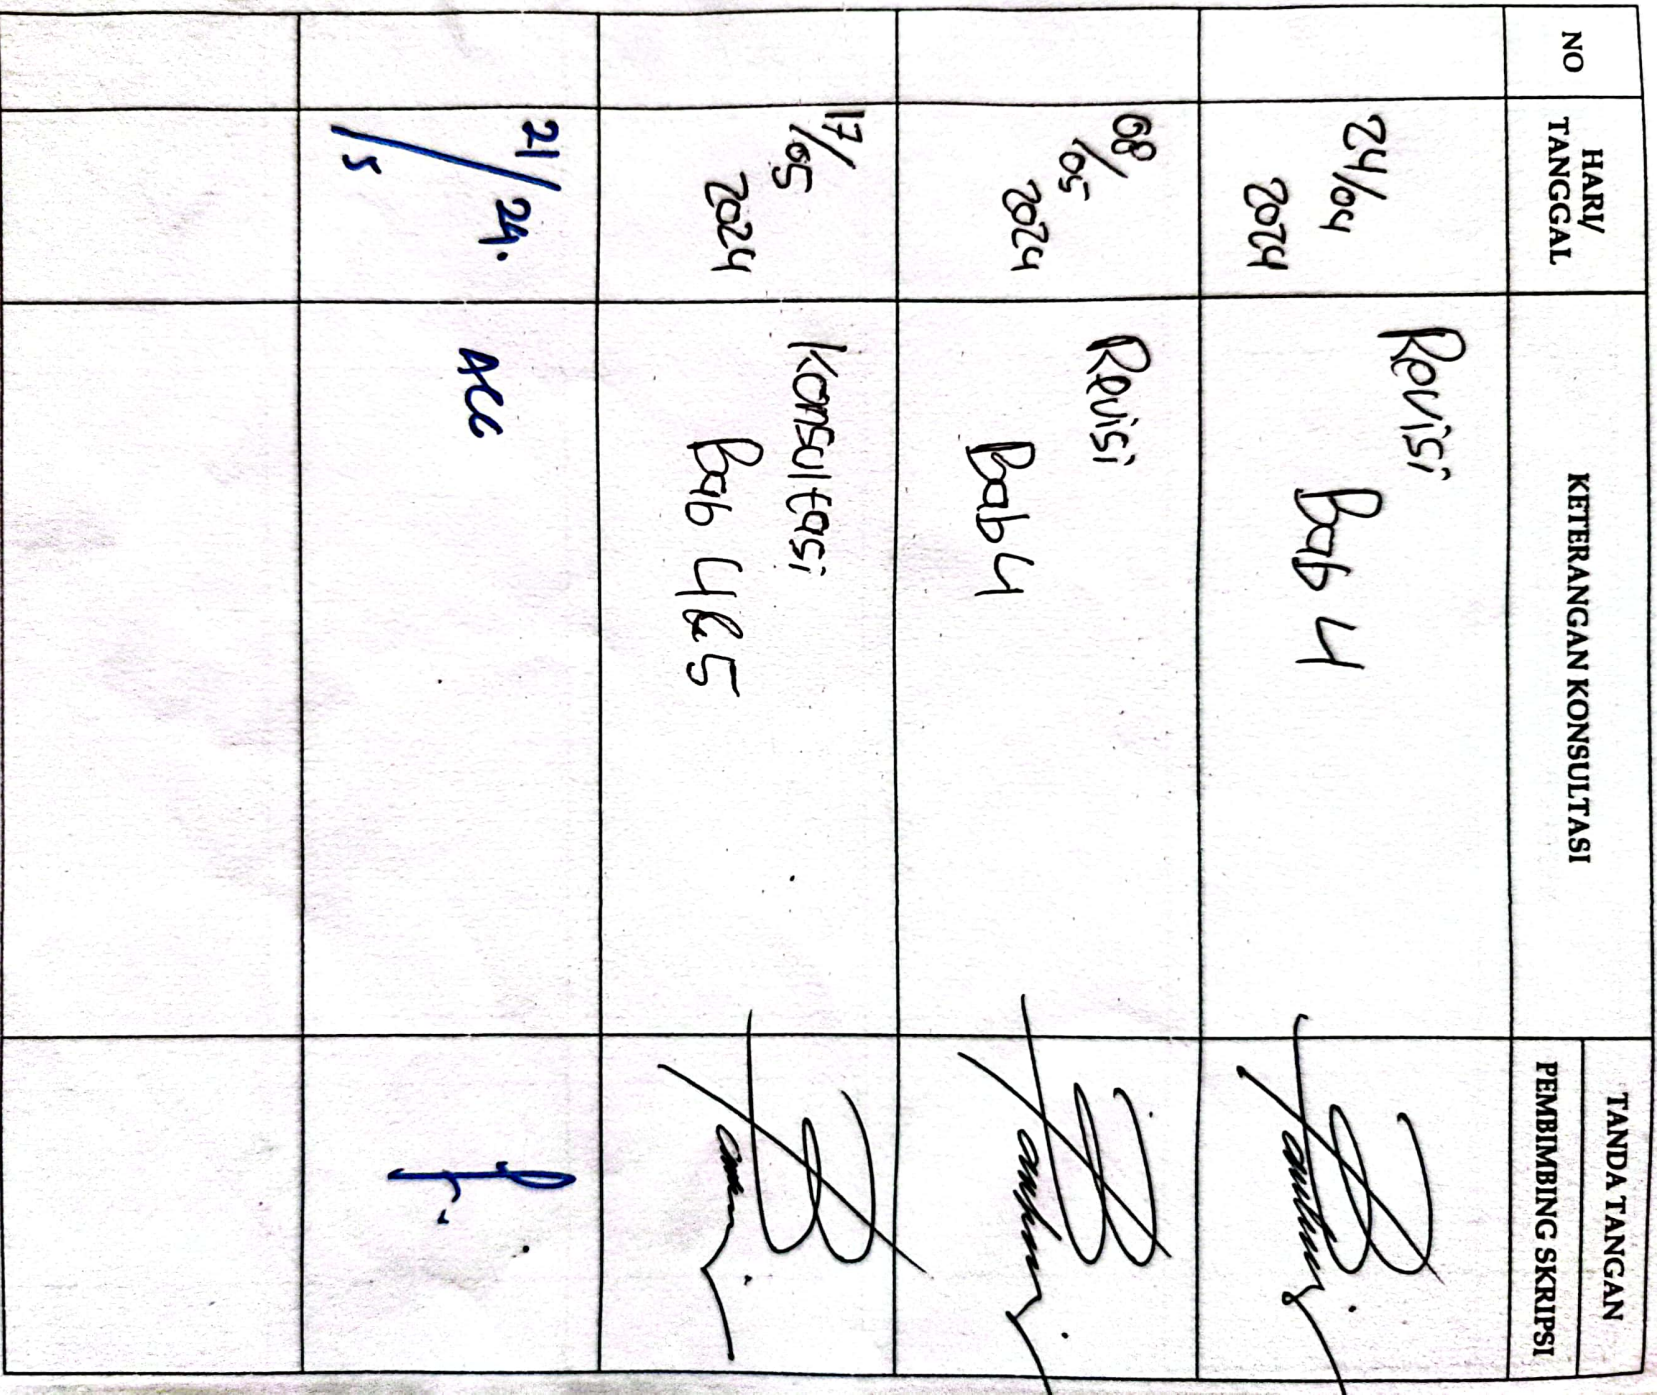 NO
HARI/
TANGGAL
KETERANGAN KONSULTASI
TANDA TANGAN
PEMBIMBING SKRIPSI
24/04
2024
Revisi
Bab 4
08/05
2024
Revisi
Bab 4
17/05
2024
Konsultasi
Bab 4 & 5
21/5/24.
ACC